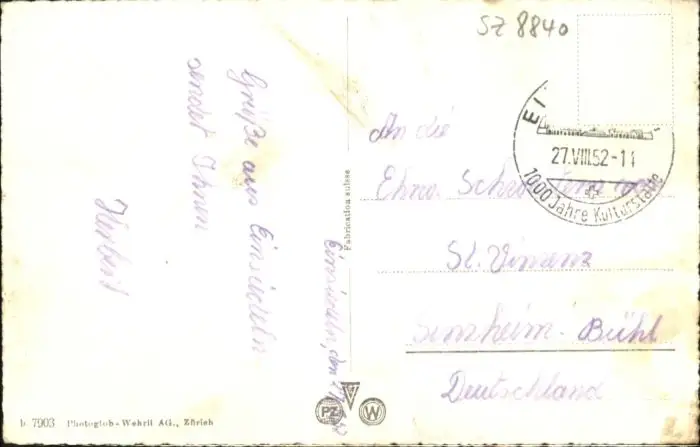 SZ 8840
Grüße aus Einsiedeln
sendet Ihnen
Herbert
Einsiedeln, den
Fabrication suisse
An die
Ehrw. Schwestern von
St. Vinzenz
Sinzheim-Bühl
Deutschland
EI
27.VIII.52-11
1000 Jahre Kulturstätte
PZ
W
b 7903 Photoglob-Wehrli AG., Zürich